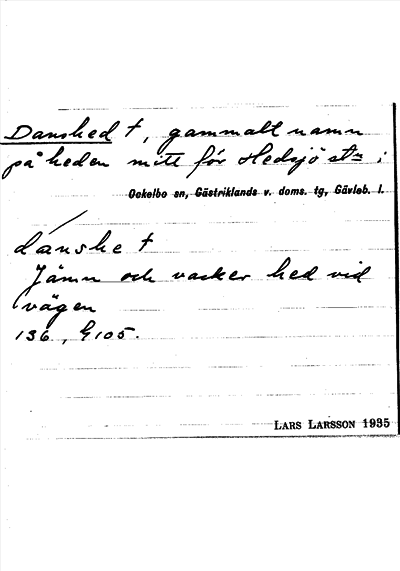 Danshed †, gammalt namn
på heden mitt för Hedsjö stn;
Ockelbo sn, Gästriklands v. doms. tg, Gävleb. l.
dánshe †
Jämn och vacker hed vid
vägen
136, G105.
LARS LARSSON 1935